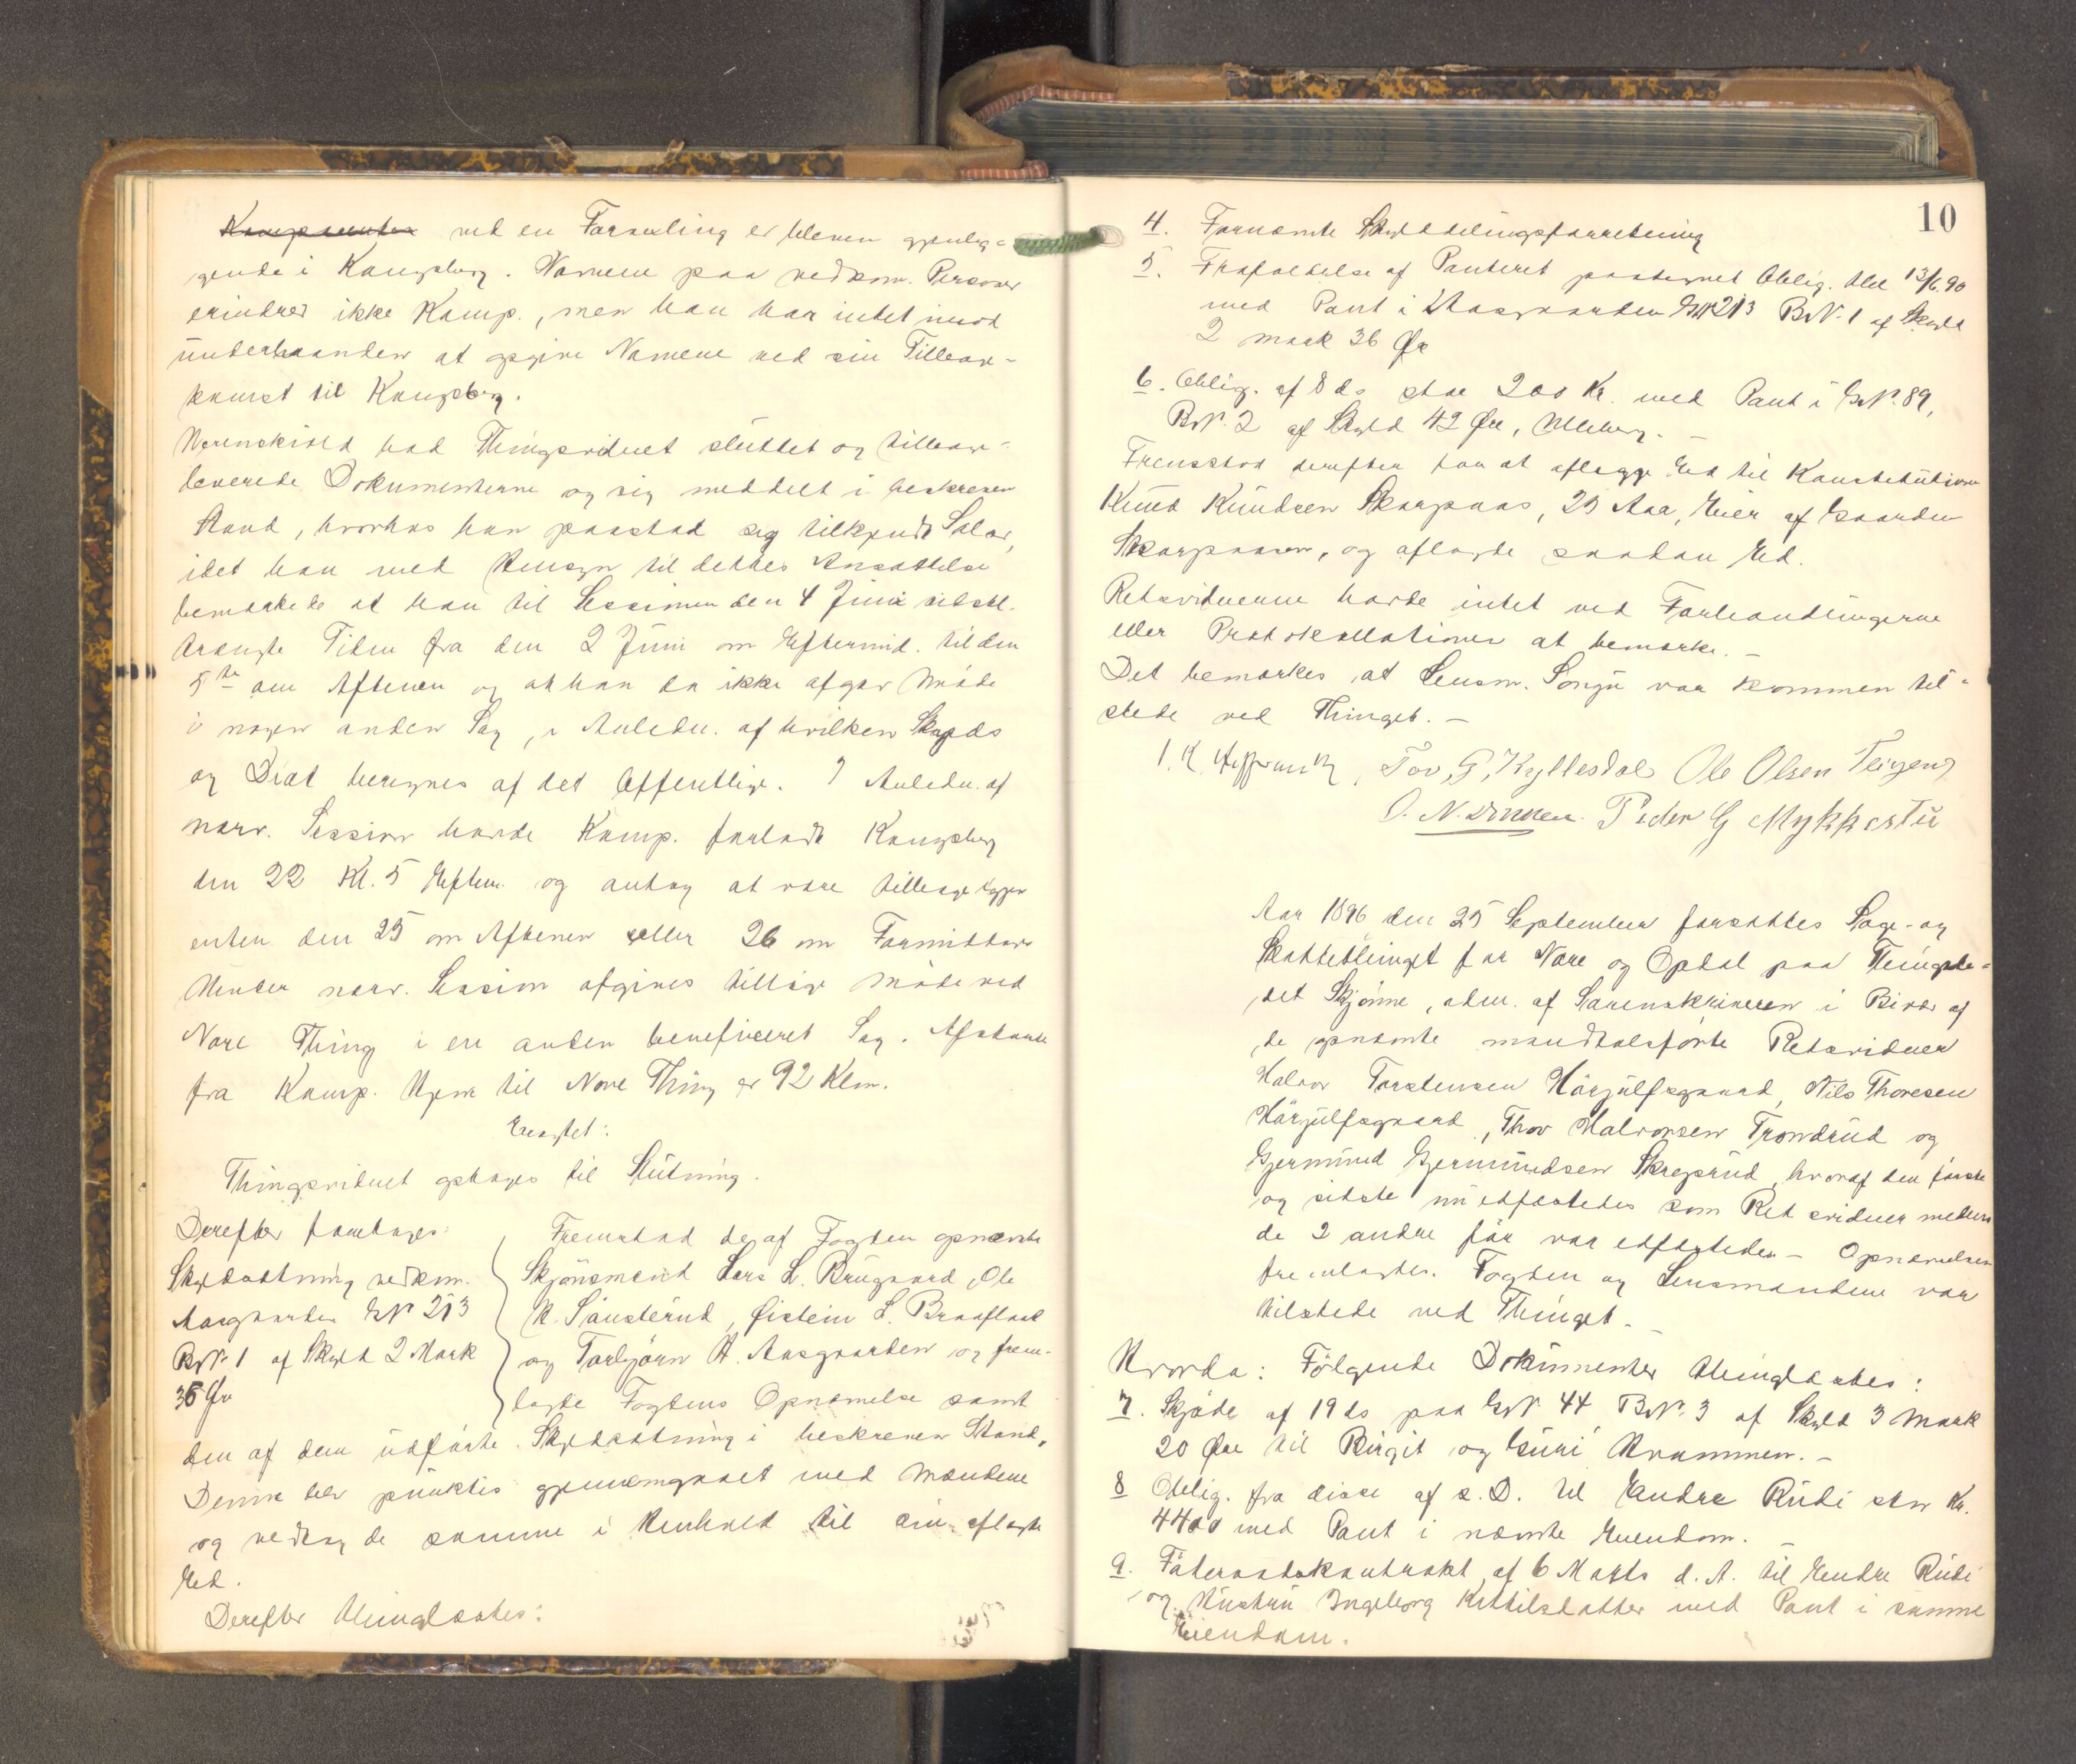 ved en Forsamling er bleven gjenlig-
gende i Kongsberg. Navnene paa vedkom. Personer
erindrer ikke Komp., men han har intet imod
underhaanden at opgive Navnene ved sin Tilbage-
komst til Kongsberg.
Værenskiold bad Thingsvidnet sluttet og tilbage-
leverede Dokumenterne og sig meddelt i beskreven
Stand, hvorhos han paastod sig tilkjendt Salær,
idet han med Hensyn til dettes Ansættelse
bemærkede at han til Sessionen den 4 Juni sidstl.
trængte Tiden fra den 2 Juni om Eftermid. til den
5te om Aftenen og at han da ikke afgav Møde
i nogen anden Sag, i Anledn. af hvilken Skyds
og Diæt beregnes af det Offentlige. I Anledn. af
nærv. Session havde Komp. forladt Kongsberg
den 22 Kl. 5 Efterm. og antog at være tilbage igjen
enten den 25 om Aftenen eller 26 om Formiddagen
Under nærv. Session afgives tillige Møde ved
Nore Thing i en anden beneficeret Sag. Afstanden
fra Komp. Hjem til Nore Thing er 92 Klm.
Eragtet:
Thingsvidnet optages til Slutning.
Derefter foretoges:
Skyldsætning vedkom.
Aasgaarden GN 213
BN. 1 af Skyld 2 Mark
36 Øre
Fremstod de af Fogden opnævnte
Skjønsmænd Lars L. Brugaard, Ole
K. Sønsterud, Øistein L. Braaflaat
og Torbjørn A. Aasgaarden og frem-
lagte Fogdens Opnævnelse samt
den af dem udførte Skyldsætning i beskreven Stand.
Denne blev punktvis gjennemgaaet med Mændene
og vedtog de samme i Henhold til sin aflagte
Ed.
Derefter thinglæstes:
10
4. Fornævnte Skylddelingsforretning
5. Frafaldelse af Panteret Oblig. 13/6. 90
med Pant i Aasgaarden GN 213 BN. 1 af Skyld
2 mark 36 Øre
6. Oblig. af 8 ds stor 200 Kr. med Pant i GN. 89,
BN. 2 af Skyld 42 Øre,
Fremstod derefter for at aflægge Ed til Konstitutionen
Knud Knudsen Skarpaas, 25 Aar, Eier af Gaarden
Skarpaasen, og aflagde saadan Ed.
Retsvidnerne havde intet ved Forhandlingerne
eller Protokollationen at bemærke. –
Det bemærkes at Lensm. Songu var kommen til-
stede ved Thinget. –
Tov. G. Kyllesdal Ole Olsen Teigen
Peder G Mykkestu
Aar 1896 den 25 September forsattes Sage- og
Skattethinget for Nore og Opdal paa Thingste-
det Skjønne, adm. af Sorenskriveren i Bivær af
de opnævnte mandtalsførte Retsvidner
Halvor Torstensen Hærjulfsgaard, Nils Thoresen
Hærjulfsgaard, Thov Halvorsen Trondrud og
Gjermund Gjermundsen Skregsrud, hvoraf den første
og sidste nu edfæstedes som Retsvidner medens
de 2 andre før var edfæstede – Opnævnelsen
fremlagdes. Fogden og Lensmændene var
tilstede ved Thinget –
Hvorda: Følgende Dokumenter thinglæstes:
7. Skjøde af 19 ds paa GN 44 BN. 3 af Skyld 3 Mark
20 Øre til Birgit og Guri Hvammen. –
8 Oblig. fra disse af s. D. til Endre Rudi stor Kr.
4400 med Pant i nævnte Eiendom. –
9. Føderaadskontrakt af 6 Marts d. A. til Endre Rudi
og Hustru Ingeborg Kittilsdatter med Pant i samme
Eiendom.